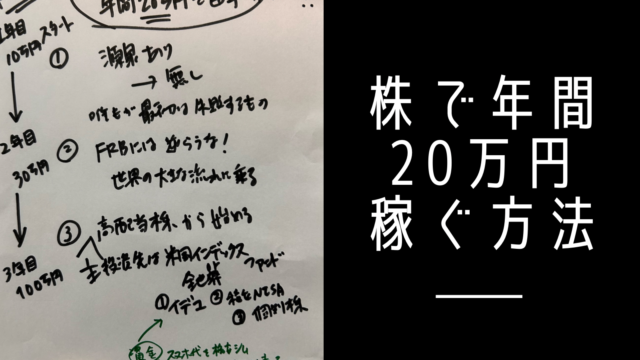 年間20万円
1年目
10万円スタート
① 源泉あり
→ 無し
最初は失敗するもの
2年目
30万円
② FRBには逆らうな!
世界の大きな流れに乗る
3年目
100万円
③ 高配当株、から始める
主投資先は米国インデックス
ファンド
①イデコ ②積立NISA
③個別株
スマホ代を
株で年間
20万円
稼ぐ方法